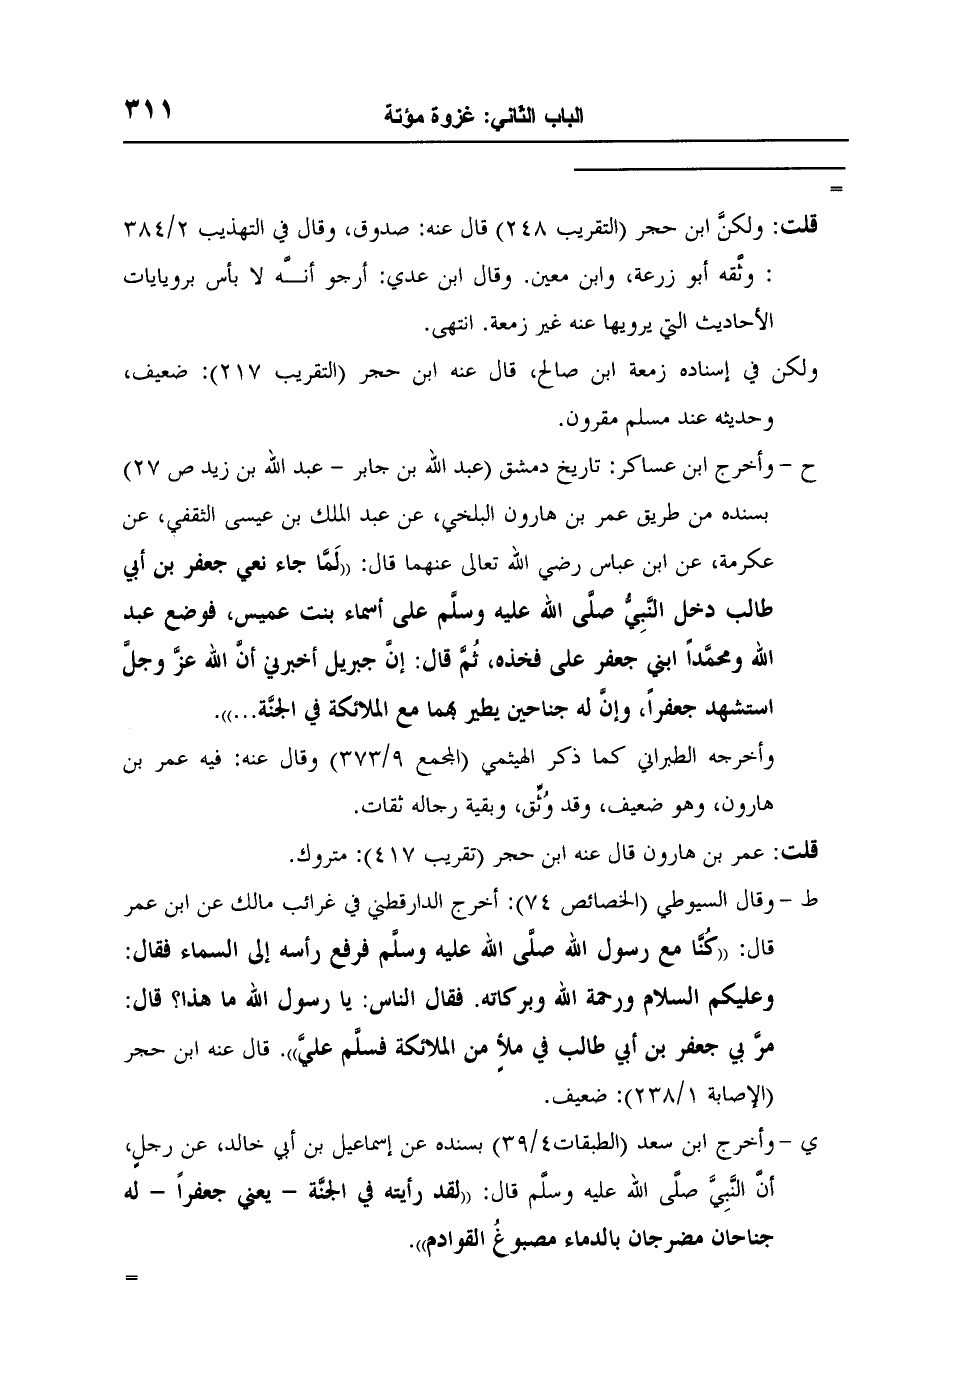 الباب الثاني: غزوة مؤتة ٣١١
=
قلت: ولكنَّ ابن حجر (التقريب ٢٤٨) قال عنه: صدوق، وقال في التهذيب ٣٨٤/٢
: وثَّقه أبو زرعة، وابن معين. وقال ابن عدي: أرجو أنــَّه لا بأس برويايات
الأحاديث التي يرويها عنه غير زمعة. انتهى.
ولكن في إسناده زمعة ابن صالح، قال عنه ابن حجر (التقريب ٢١٧): ضعيف،
وحديثه عند مسلم مقرون.
ح – وأخرج ابن عساكر: تاريخ دمشق (عبد الله بن جابر – عبد الله بن زيد ص ٢٧)
بسنده من طريق عمر بن هارون البلخي، عن عبد الملك بن عيسى الثقفي، عن
عكرمة، عن ابن عباس رضي الله تعالى عنهما قال: ((لَمَّا جاء نعي جعفر بن أبي
طالب دخل النَّبِيُّ صلَّى الله عليه وسلَّم على أسماء بنت عميس، فوضع عبد
الله ومحمَّداً ابني جعفر على فخذه، ثُمَّ قال: إنَّ جبريل أخبرني أنَّ الله عزَّ وجلَّ
استشهد جعفراً، وإنَّ له جناحين يطير بهما مع الملائكة في الجنَّة...)).
وأخرجه الطبراني كما ذكر الهيثمي (المجمع ٣٧٣/٩) وقال عنه: فيه عمر بن
هارون، وهو ضعيف، وقد وُثِّق، وبقية رجاله ثقات.
قلت: عمر بن هارون قال عنه ابن حجر (تقريب ٤١٧): متروك.
ط – وقال السيوطي (الخصائص ٧٤): أخرج الدارقطني في غرائب مالك عن ابن عمر
قال: ((كُنَّا مع رسول الله صلَّى الله عليه وسلَّم فرفع رأسه إلى السماء فقال:
وعليكم السلام ورحمة الله وبركاته. فقال الناس: يا رسول الله ما هذا؟ قال:
مرَّ بي جعفر بن أبي طالب في ملأٍ من الملائكة فسلَّم عليَّ)). قال عنه ابن حجر
(الإصابة ٢٣٨/١): ضعيف.
ي – وأخرج ابن سعد (الطبقات٣٩/٤) بسنده عن إسماعيل بن أبي خالد، عن رجلٍ،
أنَّ النَّبِيَّ صلَّى الله عليه وسلَّم قال: ((لقد رأيته في الجنَّة – يعني جعفراً – له
جناحان مضرجان بالدماء مصبوغُ القوادم)).
=